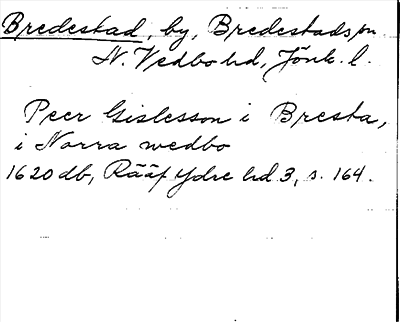 Bredestad, by, Bredestads sn
N. Vedbo hd, Jönk. l.
Peer Gislesson i Bresta,
i Norra wedbo
1620 db, Rääf Ydre hd 3, s. 164.